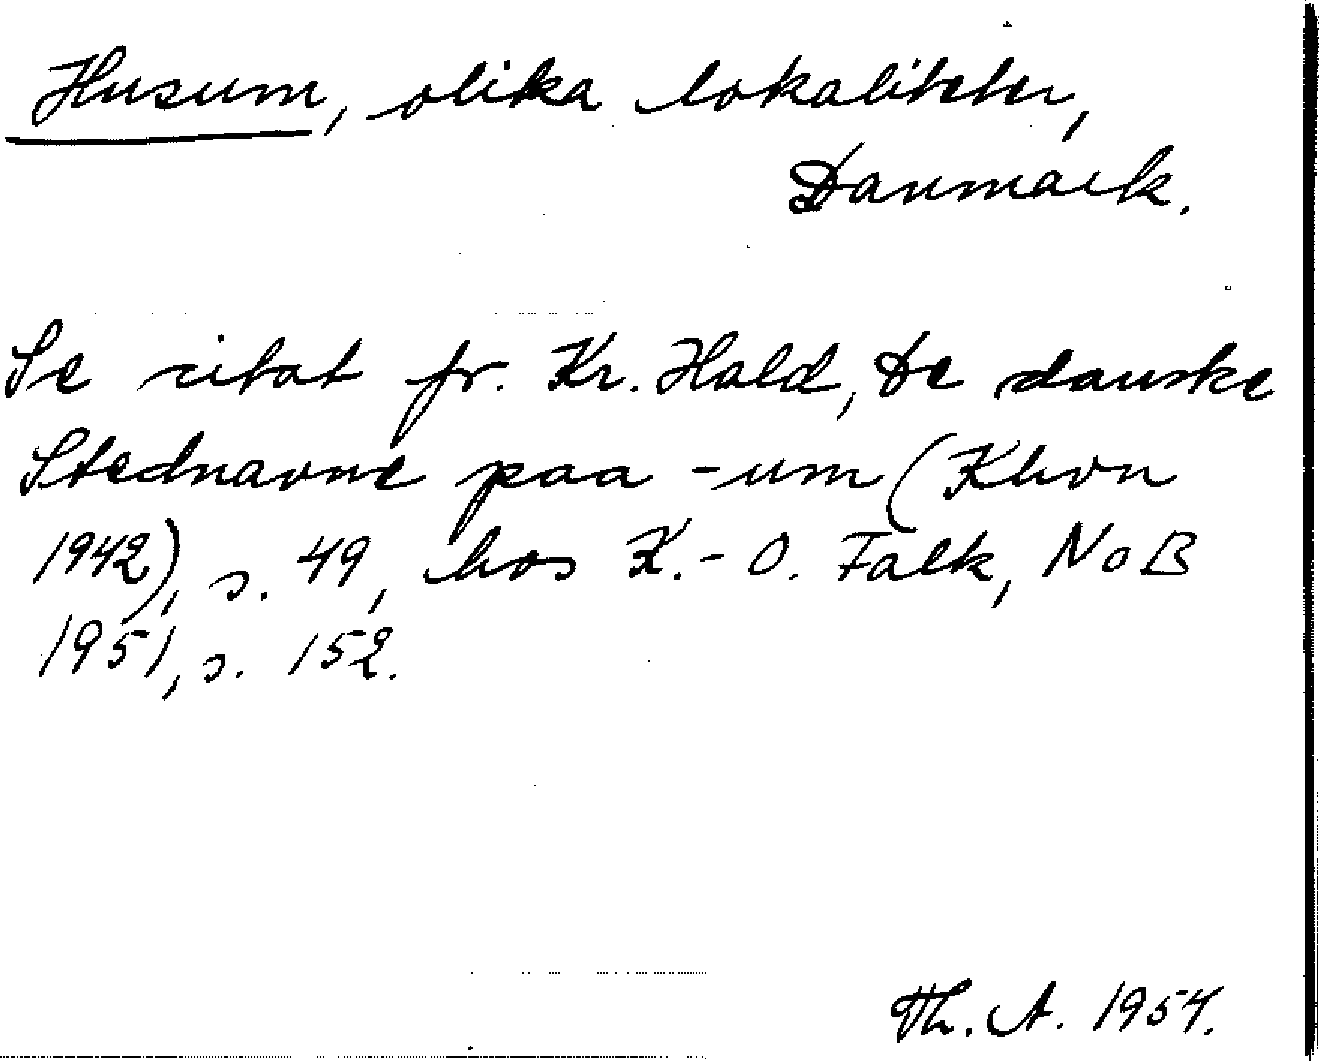 Husum, olika lokaliteter,
Danmark.
Se citat fr. Kr. Hald, De danske
Stednavne paa -um (Khvn
1942), s. 49, hos K.-O. Falk, NoB
1951, s. 152.
Th. A. 1954.